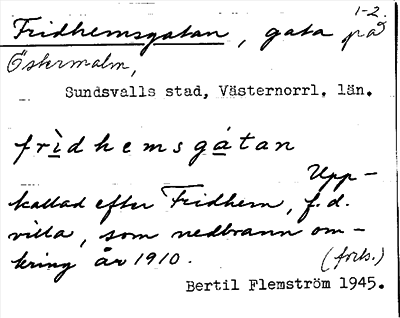 1-2.
Fridhemsgatan, gata på
Östermalm,
Sundsvalls stad, Västernorrl. län.
frìdhemsgátan
Upp-
kallad efter Fridhem, f.d.
villa, som nedbrann om-
kring år 1910.
(forts.)
Bertil Flemström 1945.